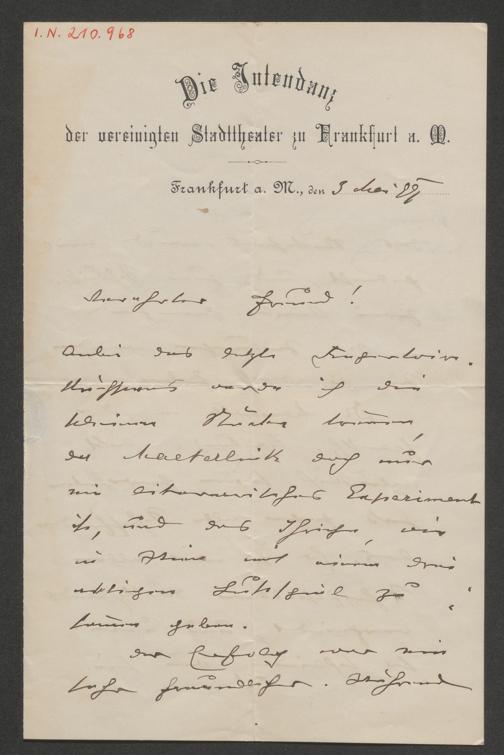 I. N. 210.968
Die Intendanz
der vereinigten Stadttheater zu Frankfurt a. M.
Frankfurt a. M., den 3 Mai 99
Verehrter Freund!
Anbei das letzte Repertoire.
Nächstens werde ich die
kleinen Stücke trennen,
da Maeterlink doch nur
ein literarisches Experiment
ist, und das Ihrige, wie
in Wien mit einem drei
aktigen Lustspiel zu
sammen geben.
Der Erfolg war ein
sehr freundlicher. Während